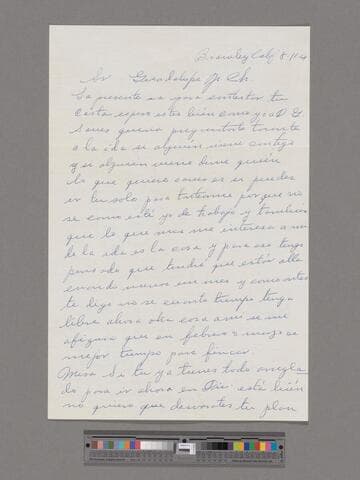 Brawley Calif 8-11-
Sr Guadalupe Jr. Ch.
La presente es para contestar tu
carta espero estes bien como yo a D G
Sames queria preguntarte tocante
a la ida si alguien viene contigo
y si alguien viene dime quién
lo que quiero saber es si puedes
ir tu solo para tratarme porque no
se como esté yo de trabajo y tambien
que lo que mas me interesa a mi
de la ida es la cosa y para eso tengo
pensado que tendré que estar alla
cuando menos un mes y como antes
te digo no se cuanto tiempo tenga
libre ahora otra cosa a mi se me
afigura que en febrero o marzo es
mejor tiempo para fincar
Mira Si tu ya tienes todo arregla
do para ir ahora en Dic. está bién
no quiero que descartes tu plan